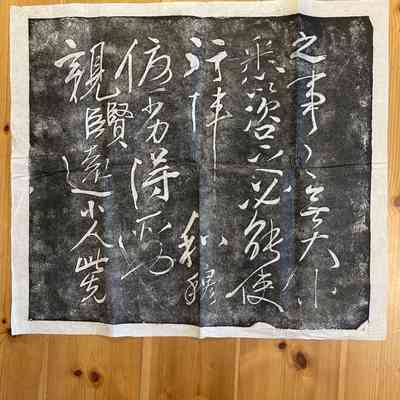 之事々無大小
悉以咨之必能使
行陣和穆
優劣得所也
親賢遠小人此先